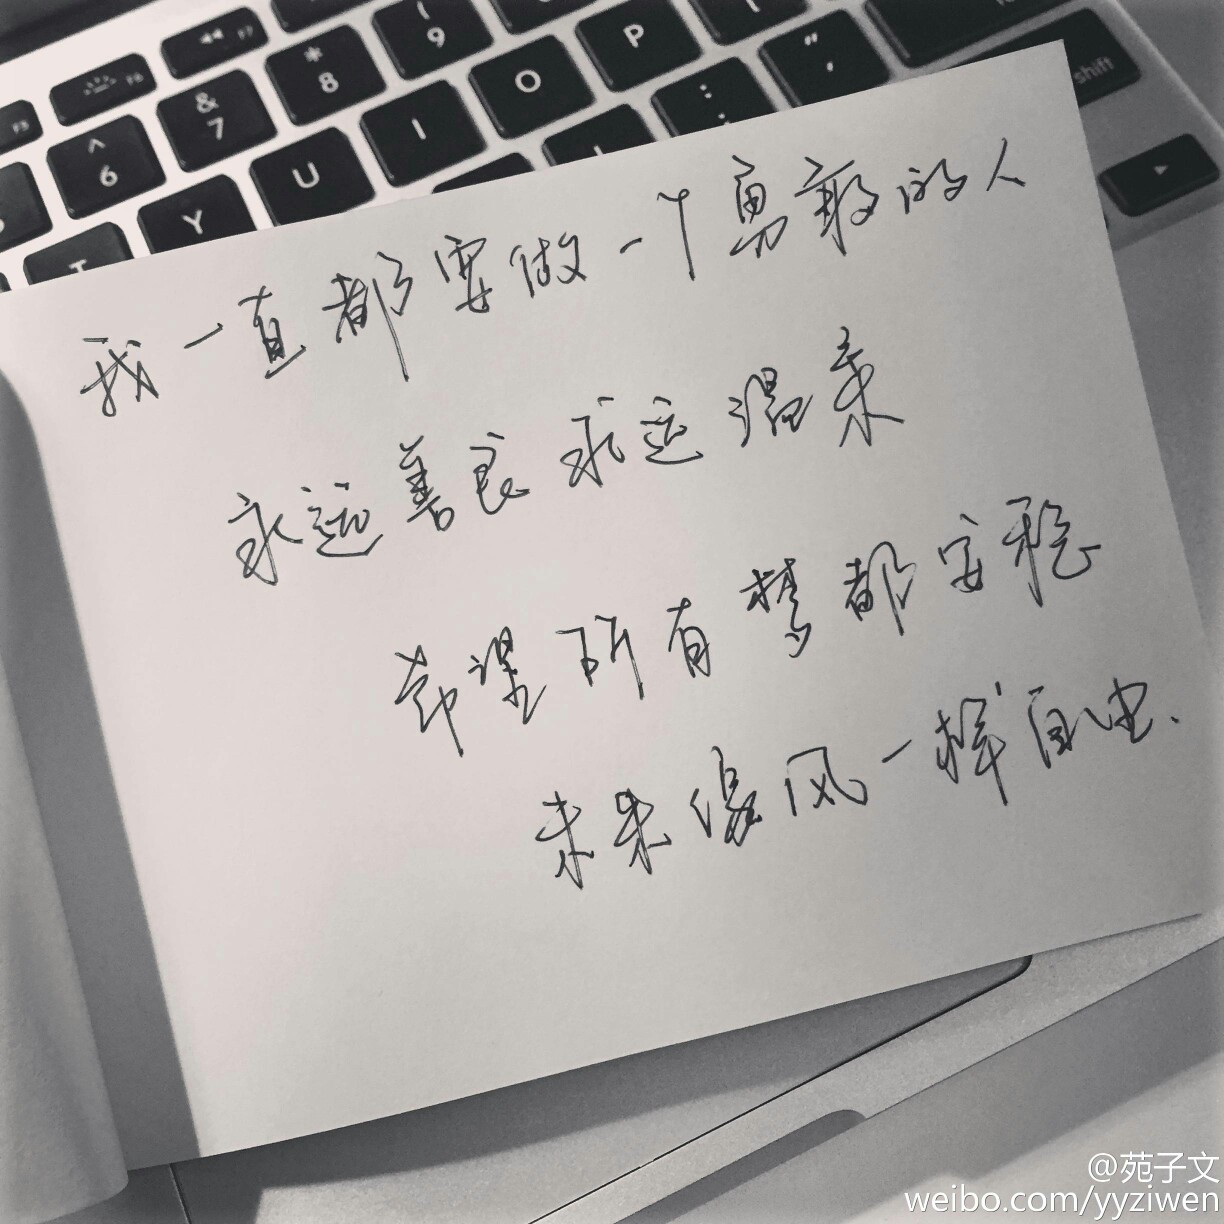 F3
F6
F7
^
6
&
7
*
8
(
9
T
Y
U
I
O
P
:
;
"
'
shift
我一直都要做一个勇敢的人
永远善良 永远温柔
希望所有梦都安稳
未来像风一样自由.
@苑子文
weibo.com/yyziwen